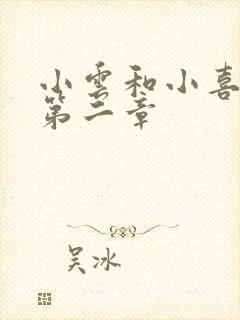 小雲和小喜
第二章
吴冰